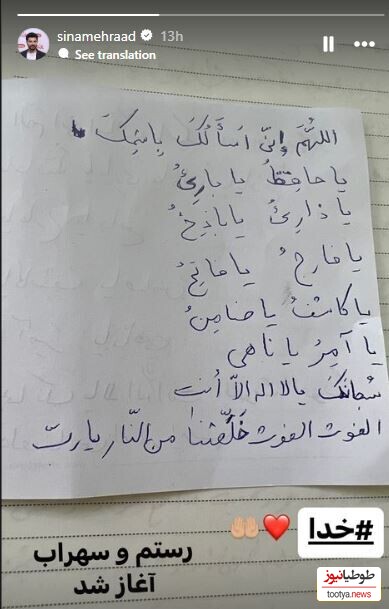 sinamehraad 13h
See translation
اللهُمَ اِنّی اَسأَلُکَ بِاسمِکَ
یا حافِظُ یا بارِئُ
یا ذارِئُ یا باذِخُ
یا فارِجُ یا فاتِحُ
یا کاشفُ یا ضامِنُ
یا آمِرُ یا ناهی
سُبحانَکَ یا لا اله الاّ أنت
الغوث الغوث خَلِّصْنا من النّار یا رب
#خدا
رستم و سهراب
آغاز شد
طوطیانیوز
tootya.news